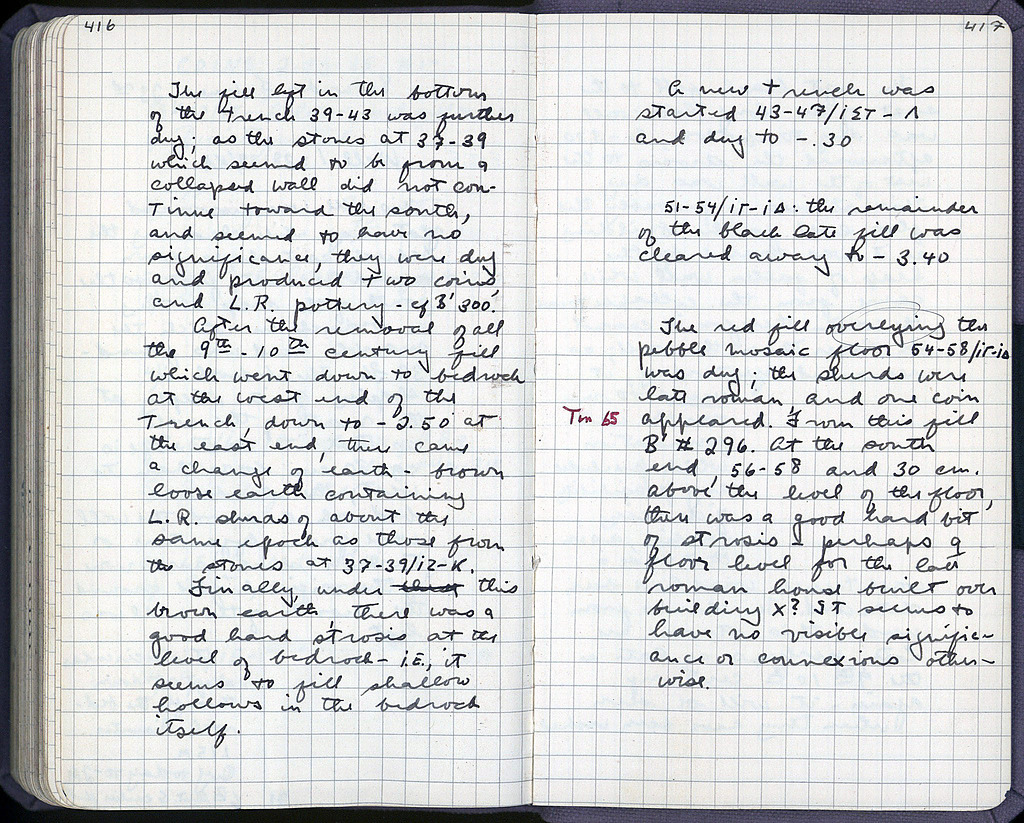 416
The fill left in the bottom
of the trench 39-43 was further
dug; as the stones at 37-39
which seemed to be from a
collapsed wall did not con-
tinue toward the south,
and seemed to have no
significance, they were dug
and produced two coins,
and L.R. pottery - cf B' 300.
After the removal of all
the 9th - 10th century fill
which went down to bedrock
at the west end of the
Trench, down to - 2.50 at
the east end, there came
a change of earth - brown
loose earth containing
L.R. sherds of about the
same epoch as those from
the stones at 37-39/ΙΖ-Κ.
Finally, under this
brown earth, there was a
good hard strosis at the
level of bedrock - i.E., it
seems to fill shallow
hollows in the bedrock
itself.
417
A new trench was
started 43-47/ΙΣΤ - Λ
and dug to -.30
51-54/ΙΓ-ΙΔ: the remainder
of the black late fill was
cleared away to - 3.40
The red fill overlying the
pebble mosaic floor 54-58/ΙΓ-ΙΔ
was dug; the sherds were
late roman, and one coin
appeared. From this fill
B' # 296. At the south
end, 56-58 and 30 cm.
above the level of the floor,
there was a good hard bit
of strosis - perhaps a
floor level for the late
roman house built over
building X? IT seems to
have no visible signific-
ance or connexions other-
wise.